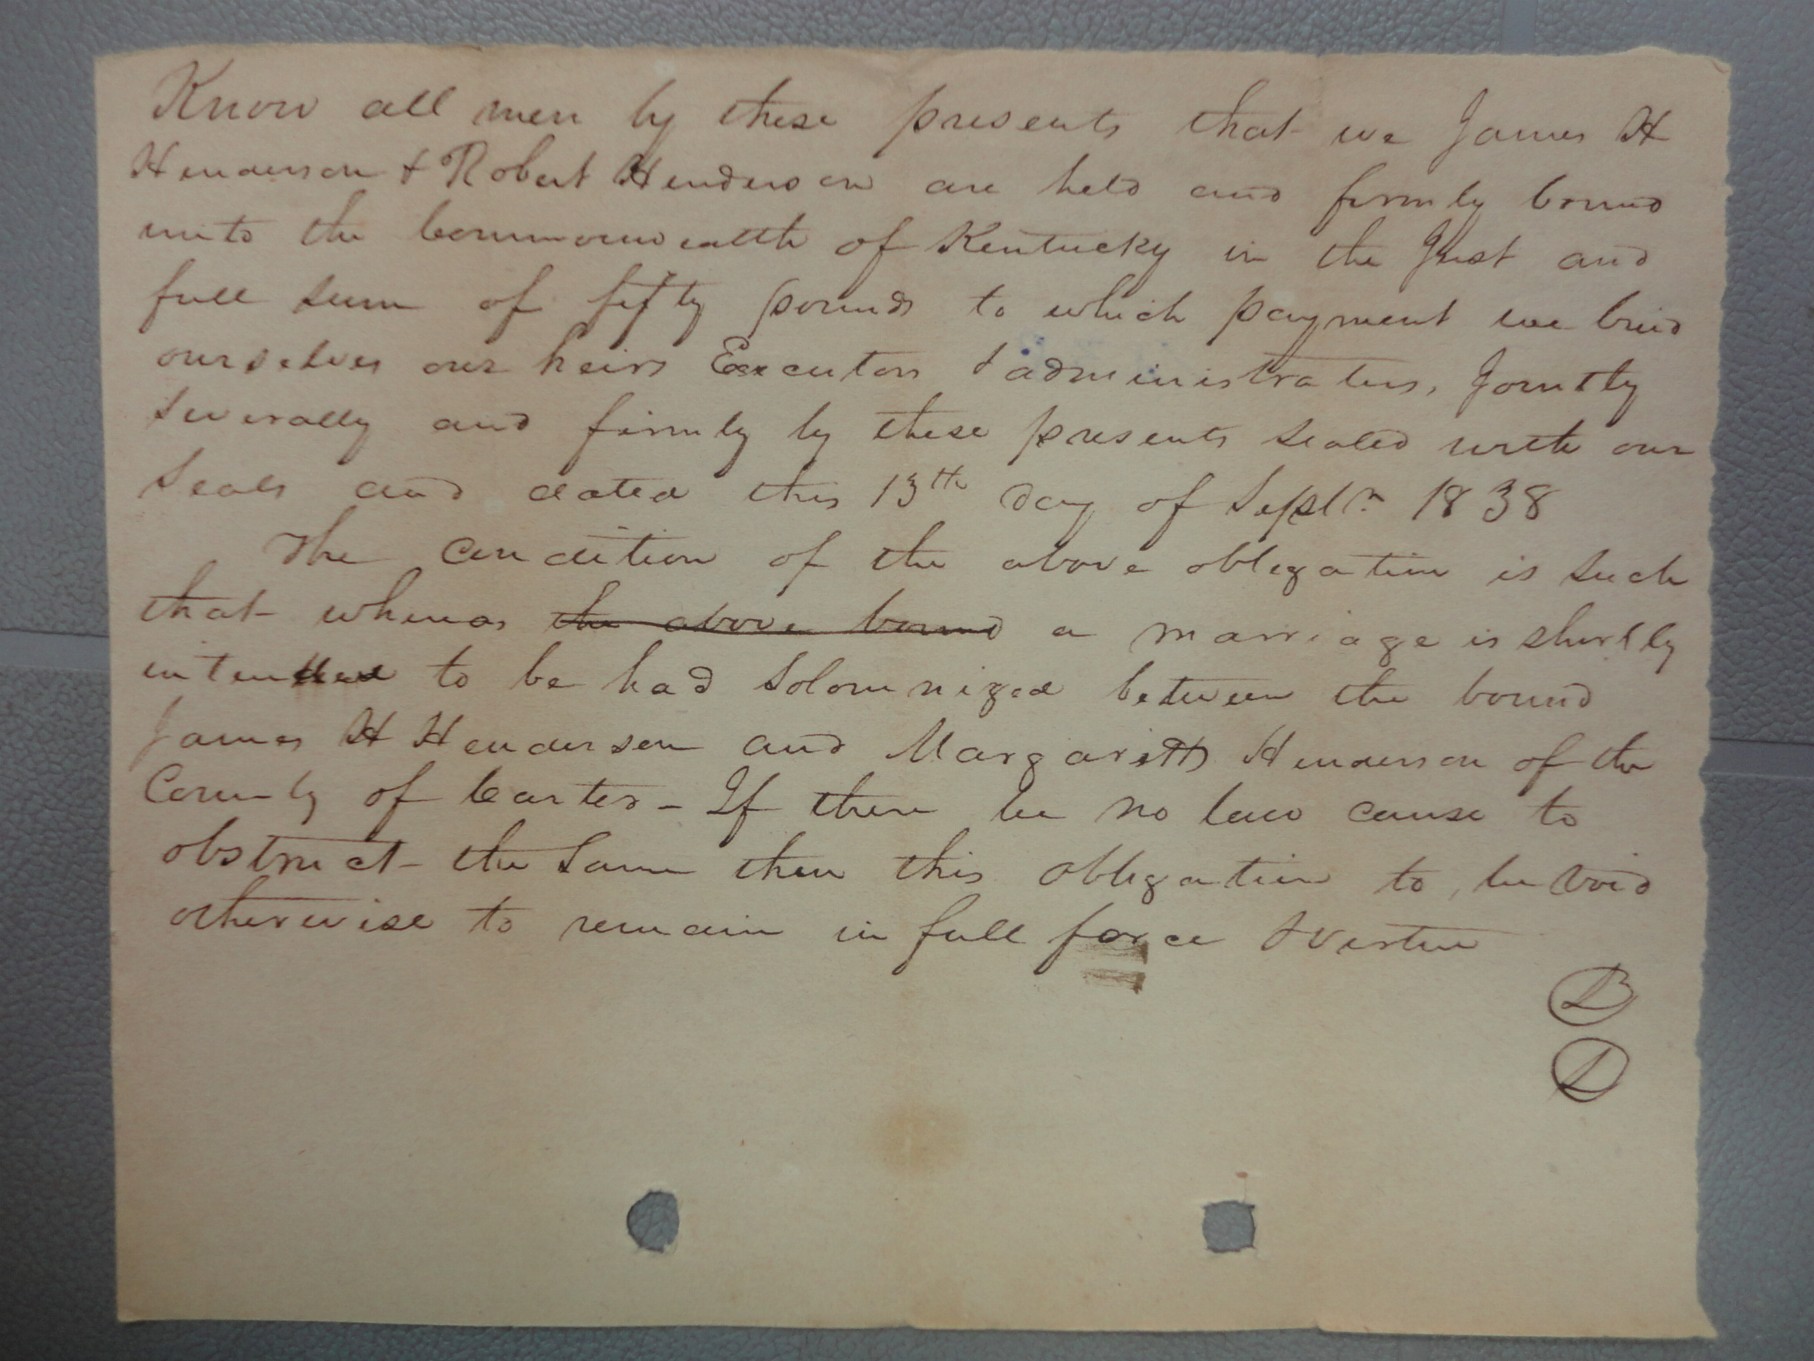 Know all men by these presents that we James H
Henderson & Robert Henderson are held and firmly bound
unto the Commonwealth of Kentucky in the Just and
full sum of fifty pounds to which payment we bind
ourselves our heirs Executors & administrators, Jointly
severally and firmly by these presents sealed with our
seals and dated this 13th day of Septr 1838
The condition of the above obligation is such
that whereas the above bound a marriage is shortly
intended to be had solomnized between the bound
James H Henderson and Henderson of the
County of Carter - If there be no law cause to
obstruct the same then this obligation to be void
otherwise to remain in full force & virtue